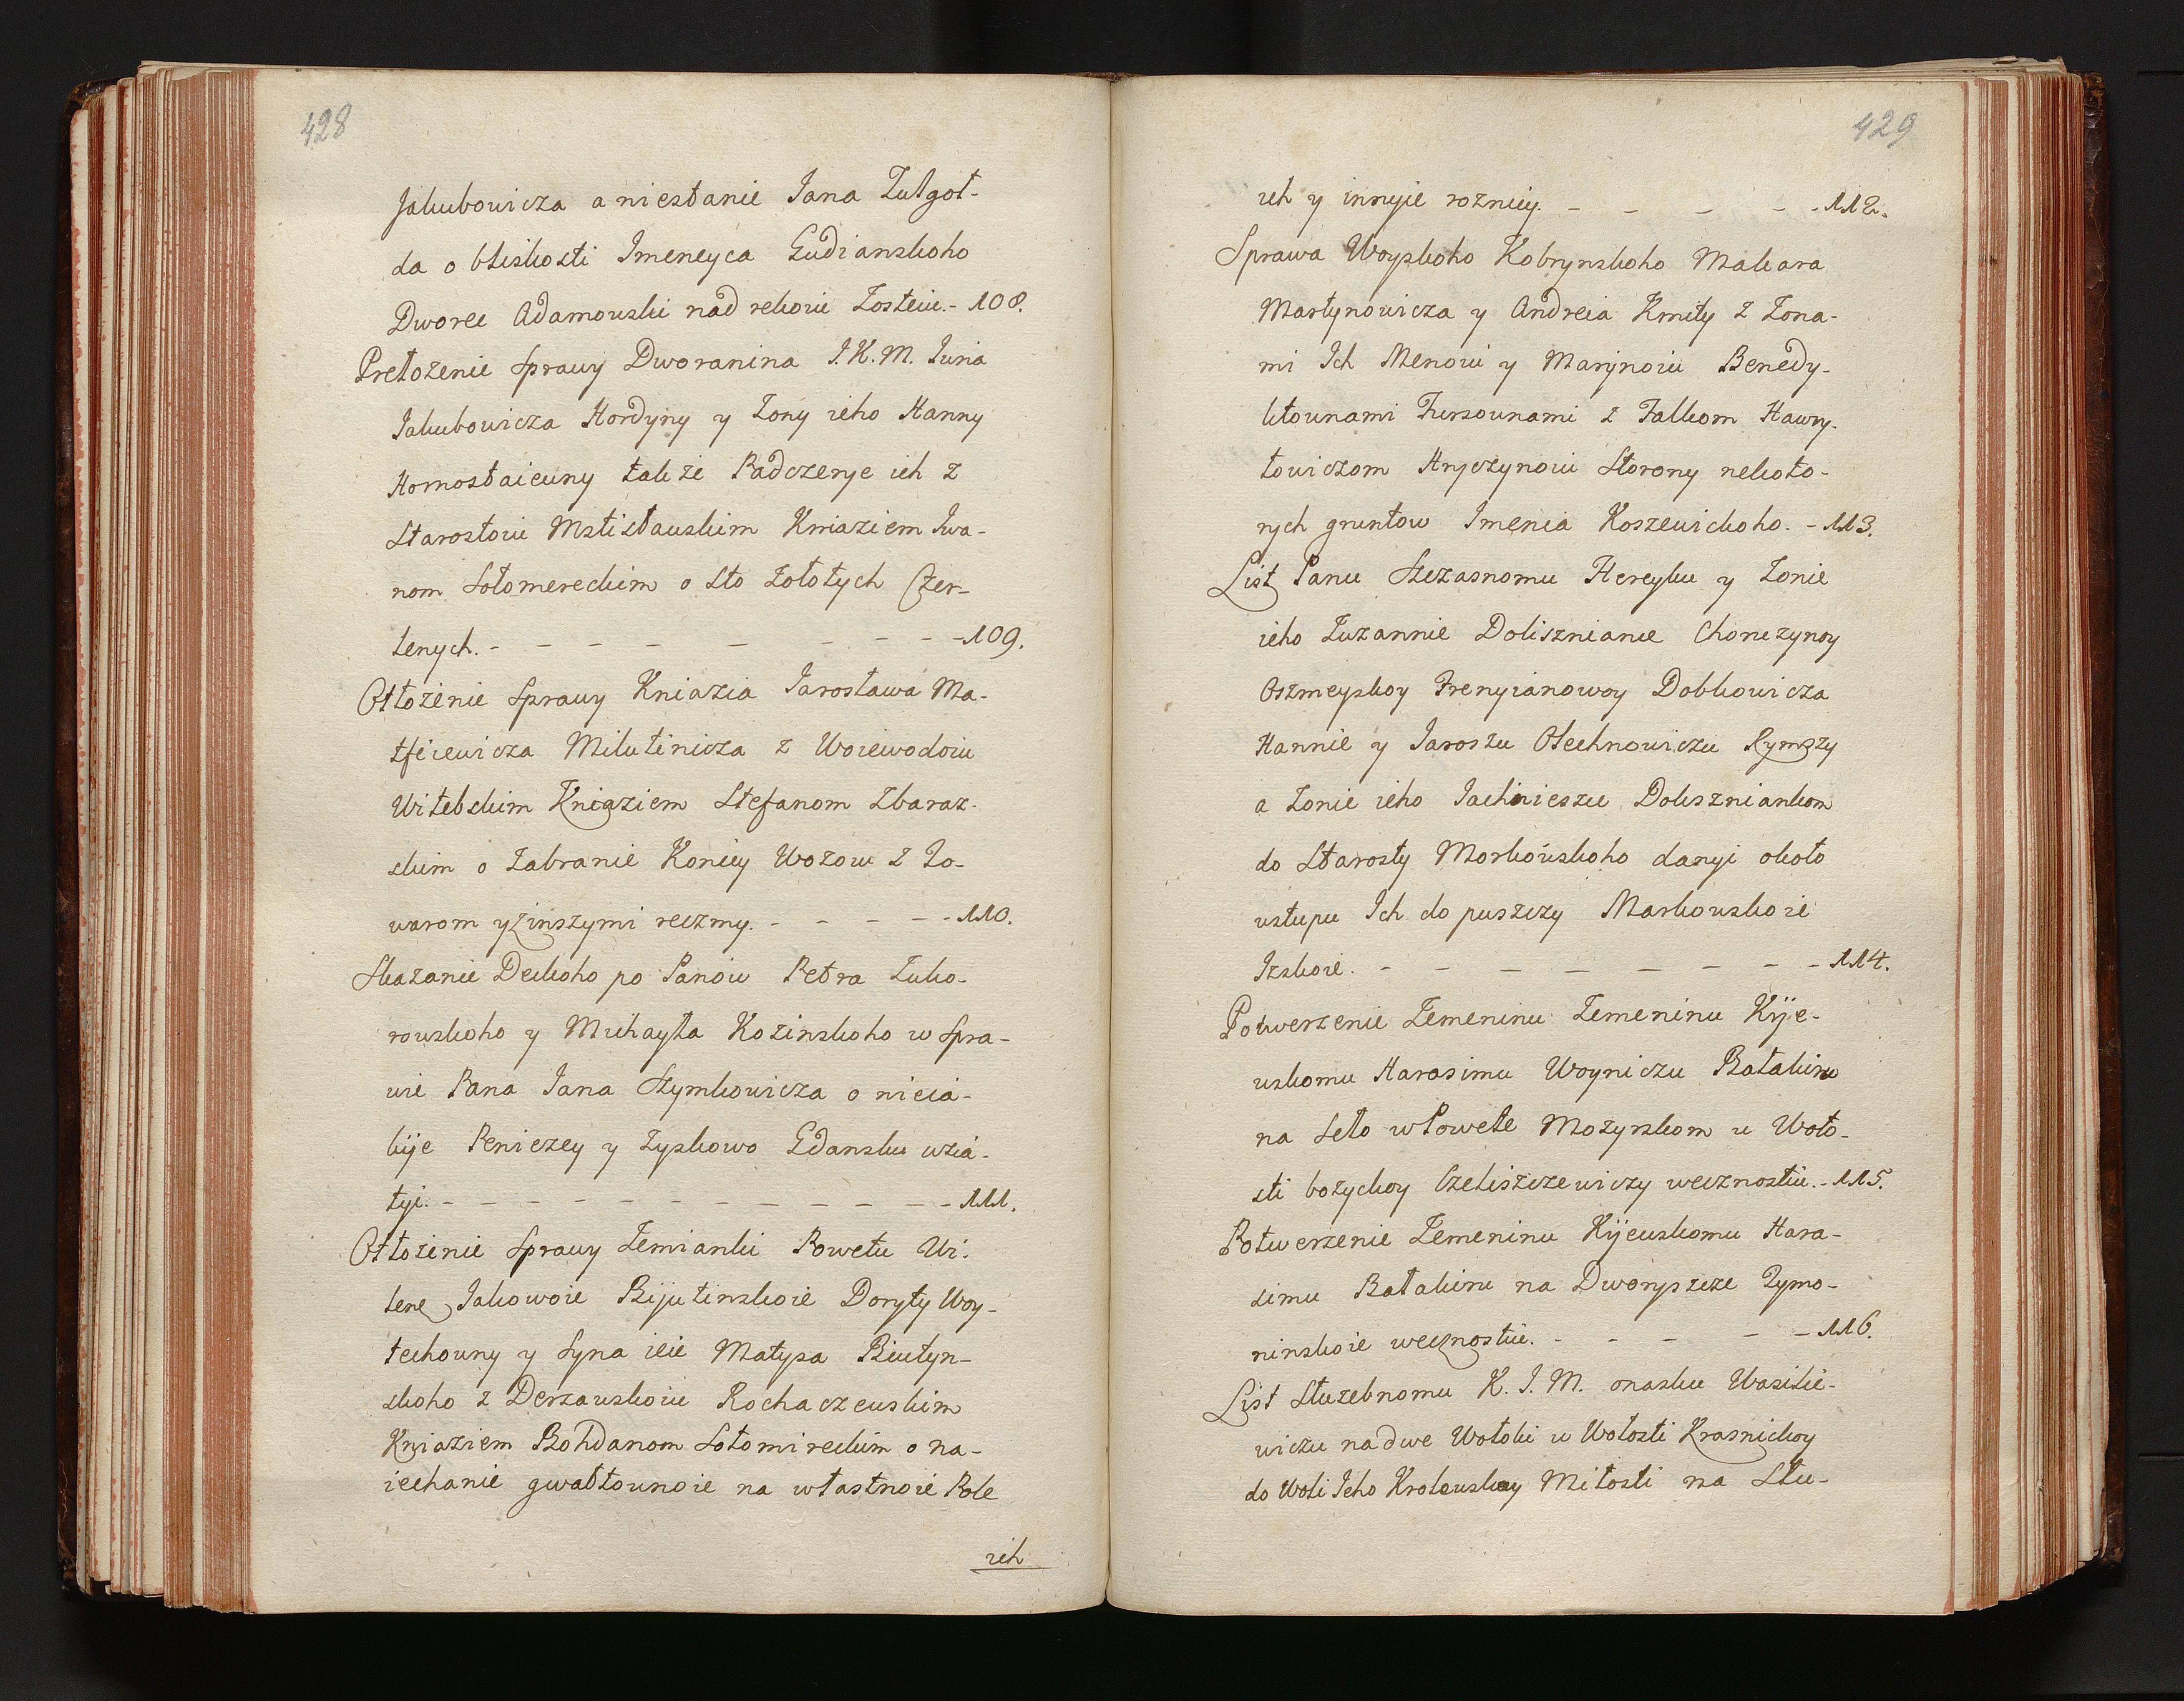 428
Jakubowicza a niestanie Jana Zulgoł-
da o bliskosti Imeneyca Gudianskoho
Dworec Adamouski nad rekoiu Zosteiu. - 108.
Prełozenie sprawy Dworanina J. K. M. Juria
Jakubowicza Hordyny y Zony ieho Hanny
Hornostaieuny takze Radczenye ich z
Starostoiu Mstisłauskim Kniaziem Iwa-
nom Sołomereckim o sto Zołotych Czer-
lenych. - - - - - - - - - 109.
Otłozenie sprawy Kniazia Jarosława Ma-
tfeiewicza Mikutinicza z Woiewodoiu
Witebskim Kniaziem Stefanom Zbaraz-
skim o Zabranie Koniey Wozow z To-
warom y Zinszymi reczmy. - - - - - 110.
Skazanie Deckoho po Panow Petra Zuko-
rouskoho y Michayła Kozinskoho w spra-
wie Pana Jana Szymkowicza o nieia-
kije Peniezey y Zyskowo Gdansku wzia-
tyi. - - - - - - - - - - - - 111.
Otłozenie sprawy Zemianki Powetu Wi-
lene Jakowoie Bijutinskoie Doryty Woy-
techouny y syna ieie Matysa Biutyn-
skoho z Derzauskoiu Rochaczeuskim
Kniaziem Bohdanom Sołomireckim o na-
iechanie gwałtounoie na własnoie Pole
ich
429
ich y innyie roznicy. - - - - - 112.
Sprawa Woyskoho Kobrynskoho Makara
Martynowicza y Andreia Kmity z Zona-
mi Ich Menoiu y Marynoiu Benedy-
ktounami Fursounami z Falkom Hawry-
łowiczom Hryczynoiu storony nekoto-
rych gruntow Imenia Koszewickoho. - 113.
List Panu Szczasnomu Hereyku y Zonie
ieho Zuzannie Doliszniance Choruzynoy
Oszmeyskoy Frenyianowoy Dobkowicza
Hannie y Jaroszu Olechnowiczu Rymszy
a Zonie ieho Jachnieszce Doliszniankom
do Starosty Morkouskoho danyi około
ustupu Ich do puszczy Markouskoie
Izskoie. - - - - - - - - - 114.
Potwerzenie Zemeninu Zemeninu Kije-
uskomu Harasimu Woyniczu Bałakiru
na seło w Powete Mozyrskom u Woło-
sti bozyckoy Czeliszczewiczy wecznostiu. - 115.
Potwerzenie Zemeninu Kijeuskomu Hara-
simu Bałakiru na Dworyszcze Tymo-
ninskoie wecznostiu. - - - - - 116.
List słuzebnomu K. J. M. onasku Wasilie-
wiczu na dwe Wołoki u Wołosti Krasnickoy
do Woli Jeho Kroleuskoy Miłosti na Słu-